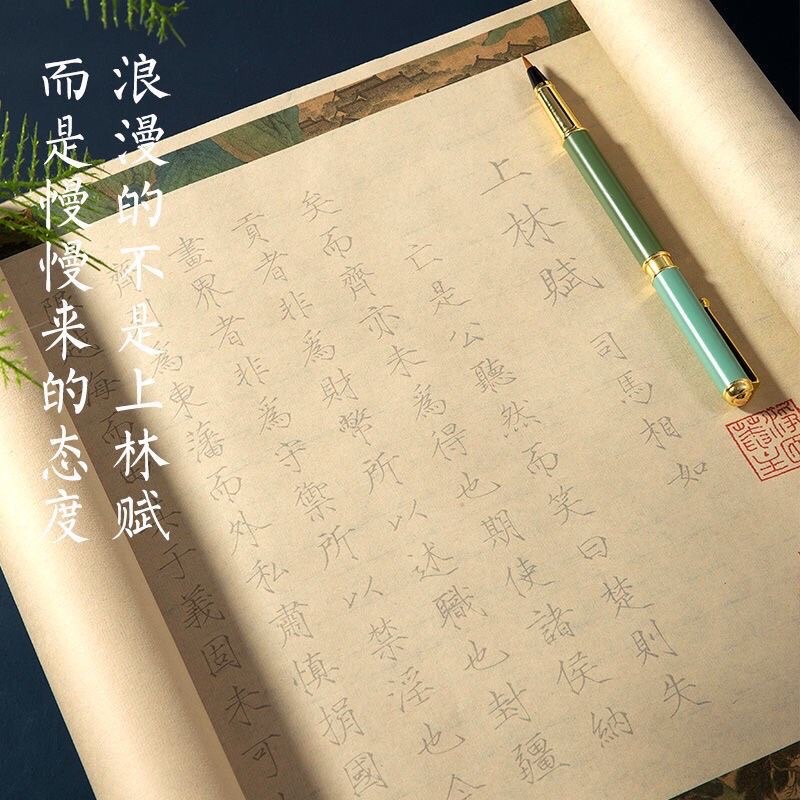 浪漫的不是上林赋
而是慢慢来的态度
上林賦
司馬相如
亡是公聽然而笑曰楚則失
矣而齊亦未為得也期使諸侯納
貢者非為財幣所以述職也封疆
畫界者非為守禦所以禁淫也今
齊為東藩而外私肅慎捐國
海而于義固未可